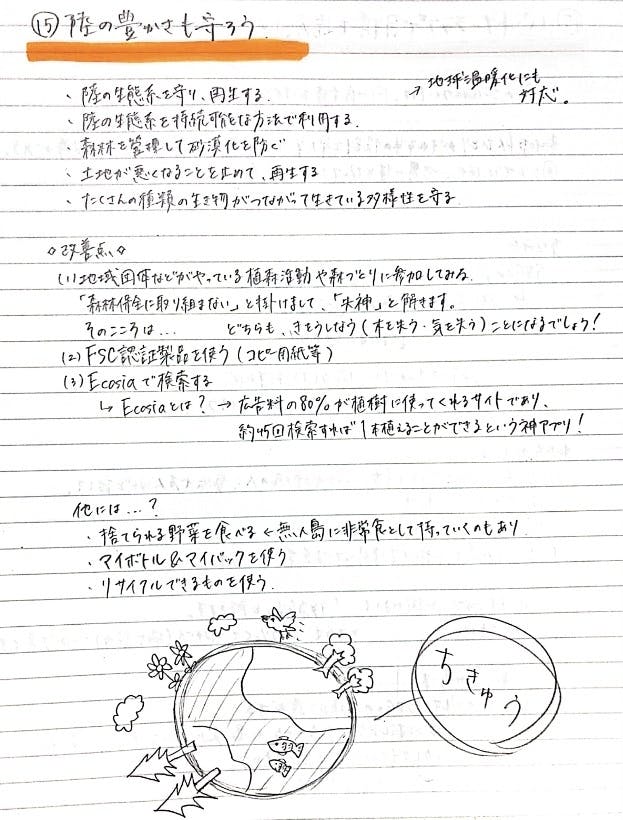 ⑮ 陸の豊かさも守ろう
・陸の生態系を守り、再生する。 → 地球温暖化にも
対応。
・陸の生態系を持続可能な方法で利用する。
・森林を管理して砂漠化を防ぐ
・土地が悪くなることを止めて、再生する
・たくさんの種類の生き物がつながって生きている多様性を守る
◇改善点◇
(1)地域団体などがやっている植森活動や森づくりに参加してみる。
「森林保全に取り組まない」と掛けまして、「失神」と解きます。
そのこころは… どちらも、きをうしなう(木を失う・気を失う)ことになるでしょう!
(2) FSC認証製品を使う(コピー用紙等)
(3) Ecosiaで検索する
↳ Ecosiaとは? → 広告料の80%が植樹に使ってくれるサイトであり、
約45回検索すれば1本植えることができるという神アプリ!
他には…?
・捨てられる野菜を食べる ← 無人島に非常食として持っていくのもあり
・マイボトル&マイバックを使う
・リサイクルできるものを使う
ちきゅう